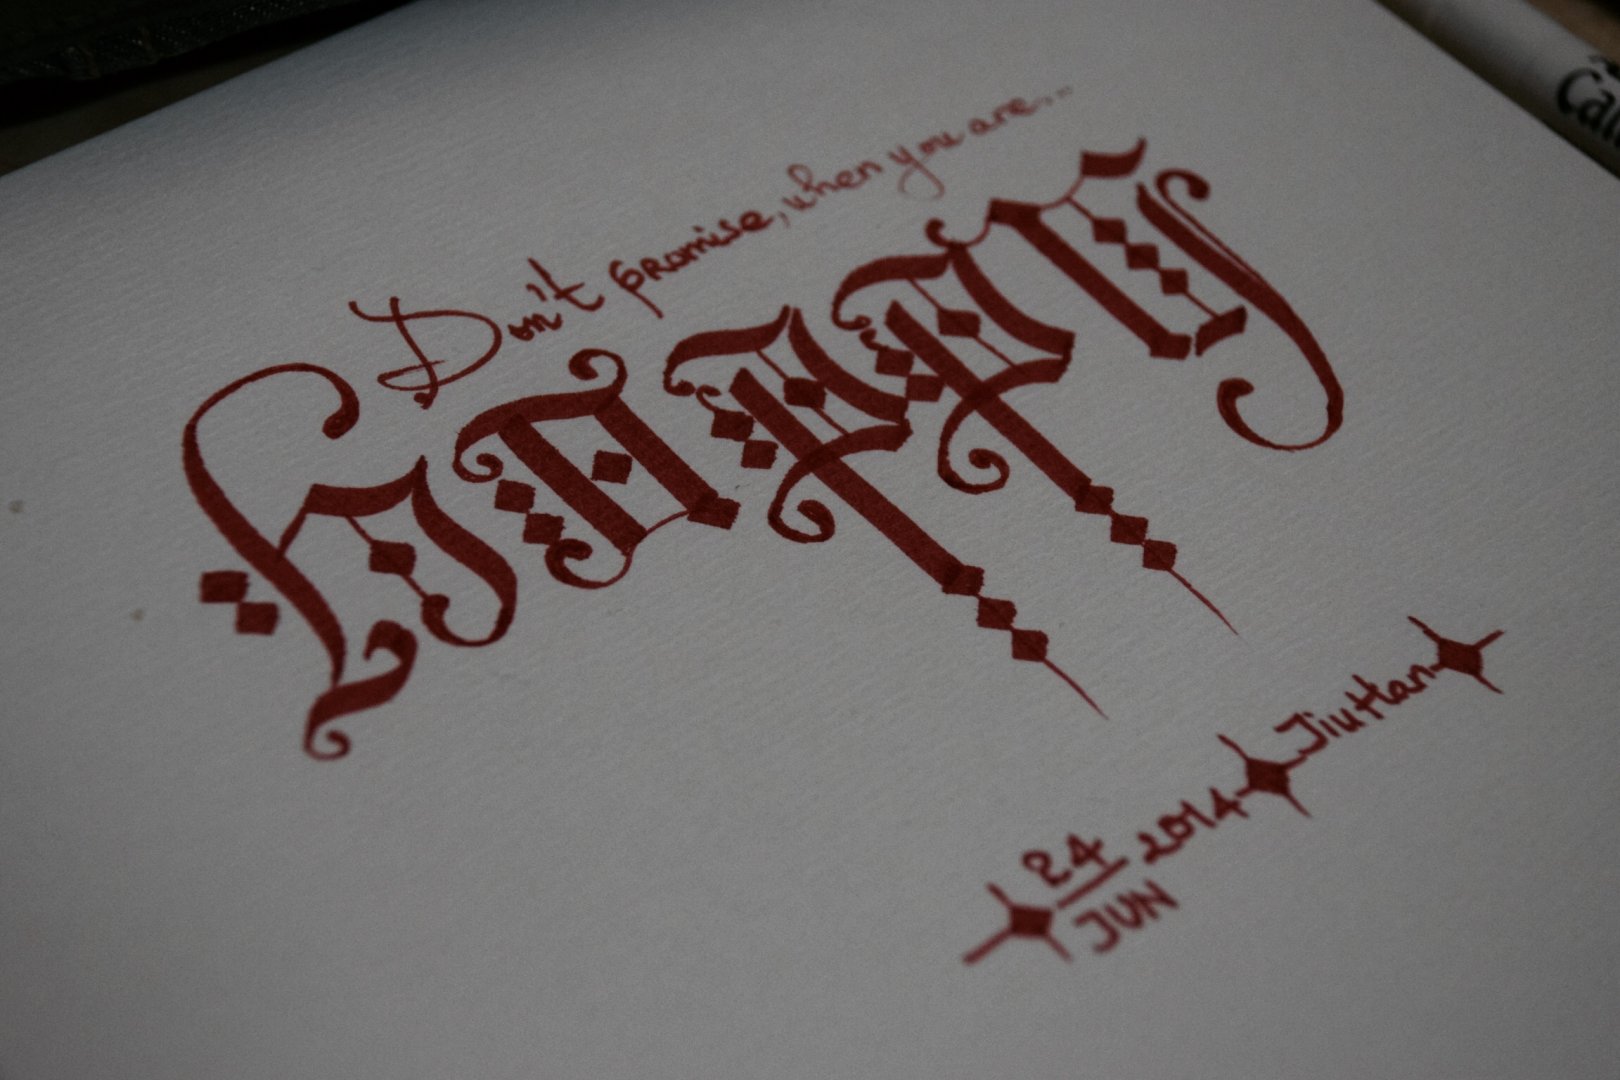 Don't promise, when you are...
happy
24 JUN 2014 JiuHan